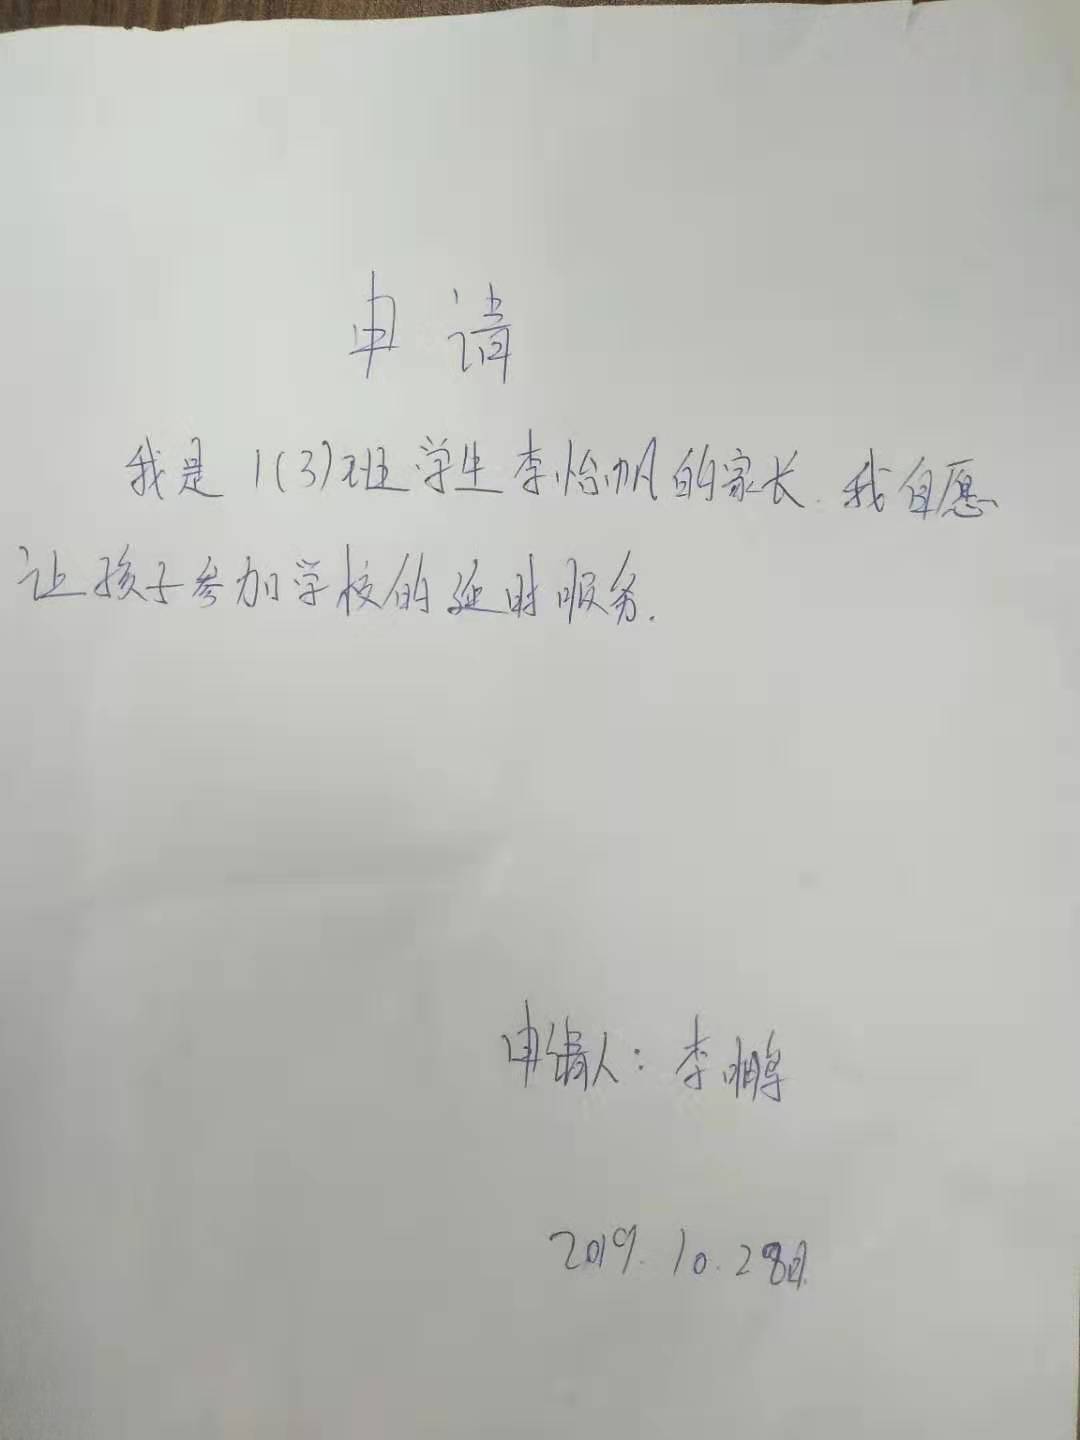 申请
我是1(3)班学生李怡帆的家长.我自愿
让孩子参加学校的延时服务.
申请人:李鹏
2019.10.28日